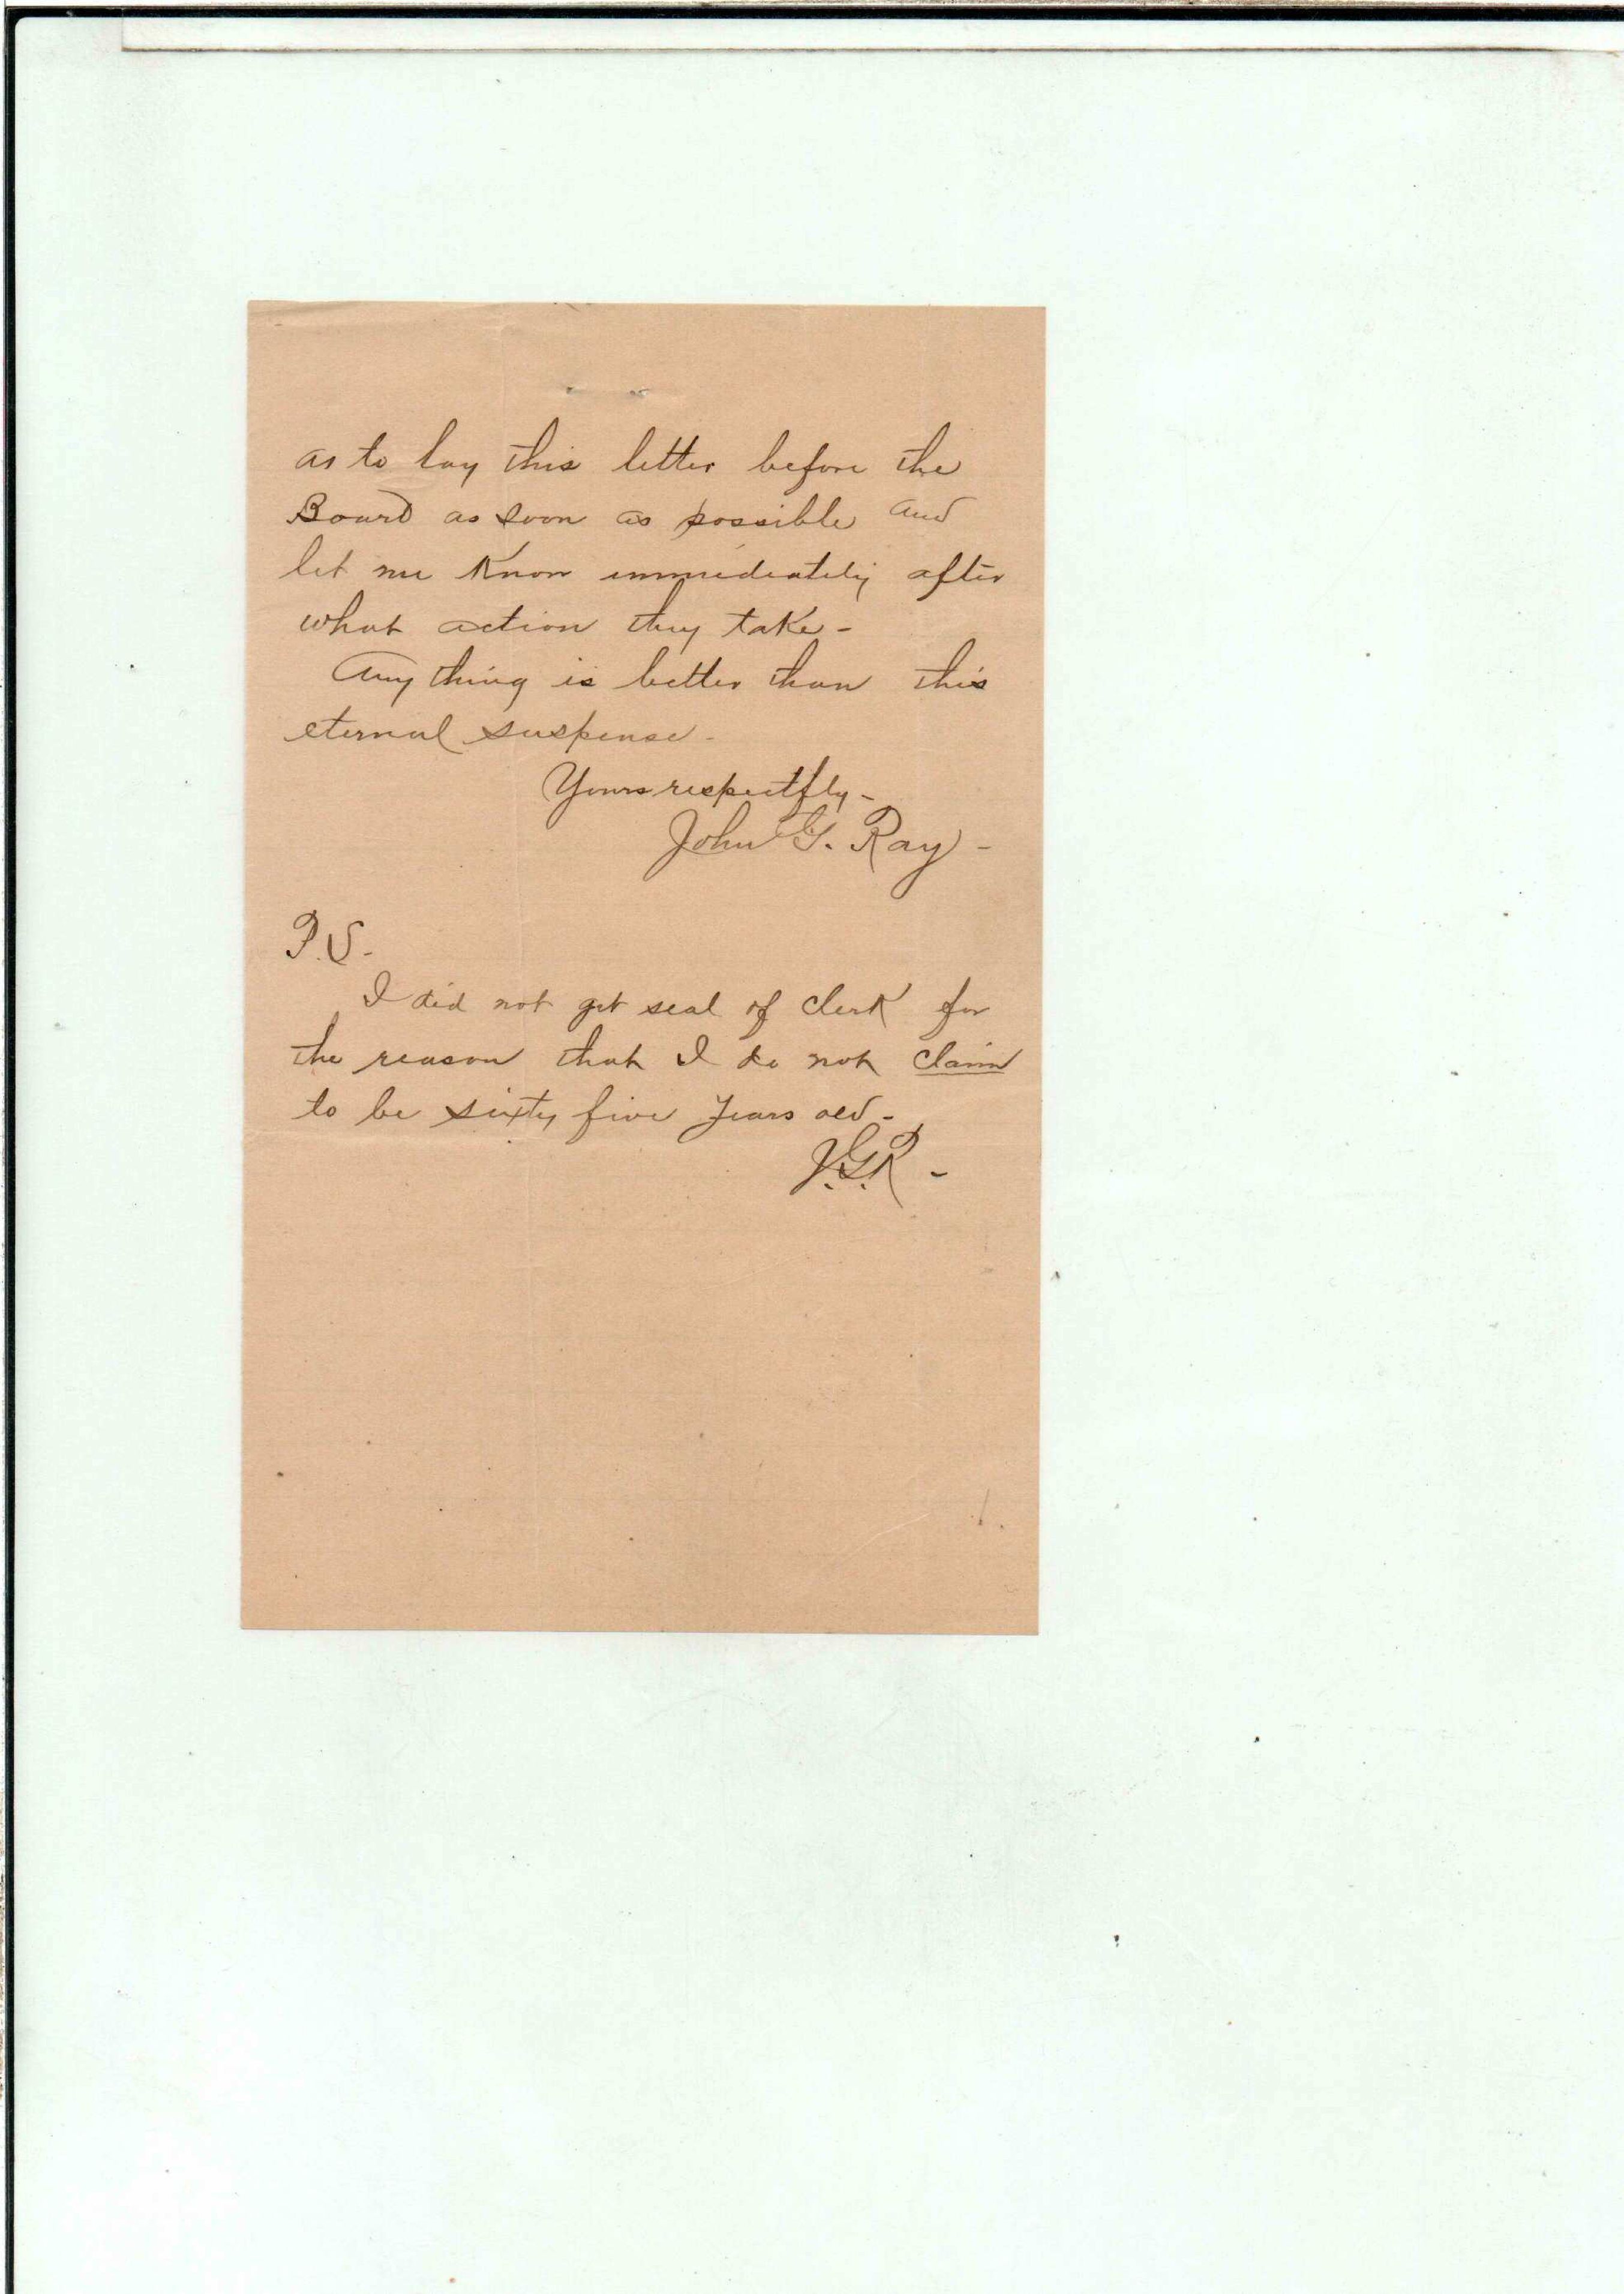 as to lay this letter before the
Board as soon as possible and
let me Know immediately after
what action they take -
Any thing is better than this
eternal suspense -
Yours respectfly -
John G. Ray -
P.S. -
I did not get seal of Clerk for
the reason that I do not claim
to be sixty five years old -
J.G.R -